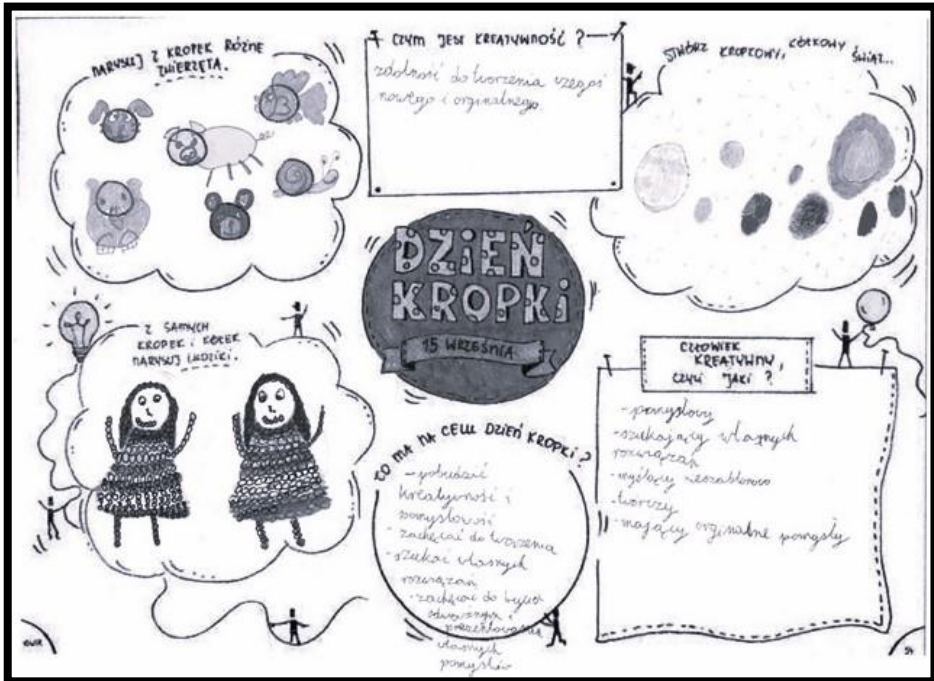 NARYSUJ Z KROPEK RÓŻNE
ZWIERZĘTA.
CZYM JEST KREATYWNOŚĆ?
zdolność do tworzenia czegoś
nowego i orginalnego.
STWÓRZ KROPKOWY, KÓŁKOWY ŚWIAT...
DZIEŃ
KROPKI
15 WRZEŚNIA
Z SAMYCH
KROPEK i KÓŁEK
NARYSUJ LUDZIKI.
CO MA NA CELU DZIEŃ KROPKI?
- pobudzić
kreatywność i
pomysłowość
- zachęcać do tworzenia
- szukać własnych
rozwiązań
- zachęcać do bycia
odważnym i
prezentowania
własnych
pomysłów
CZŁOWIEK
KREATYWNY,
CZYLI JAKI?
- pomysłowy
- szukający własnych
rozwiązań
- myślący nieszablonowo
- twórczy
- mający orginalne pomysły